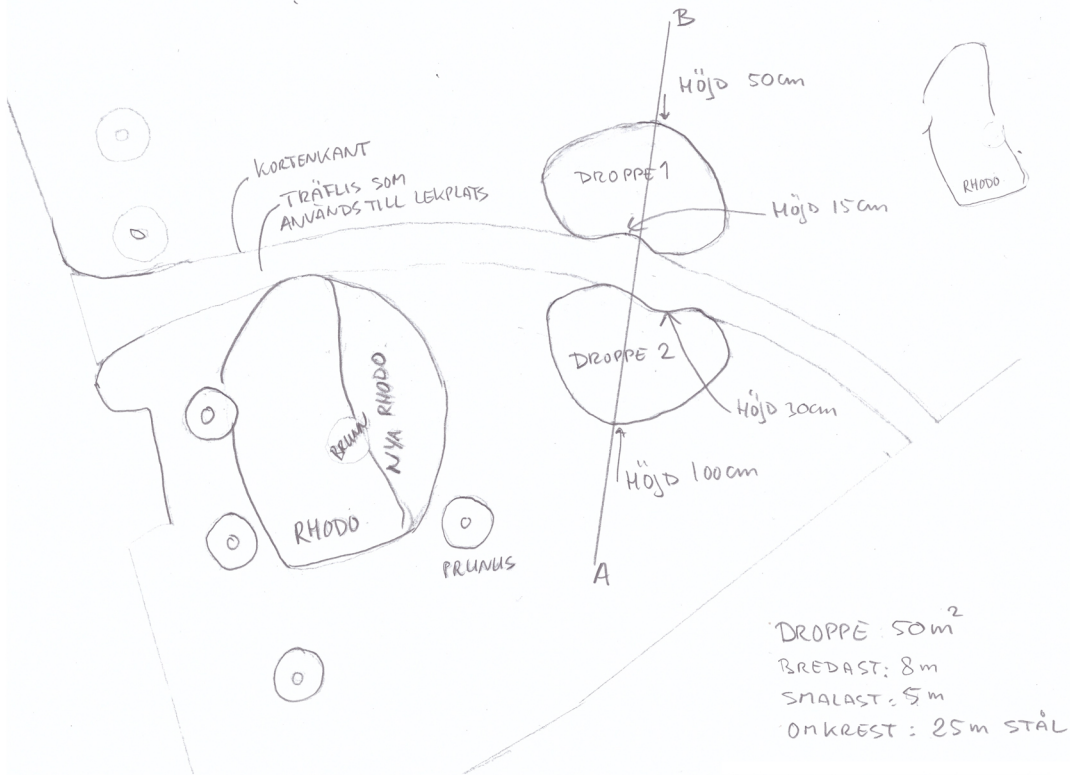 B
HÖJD 50cm
KORTENKANT
TRÄFLIS SOM
ANVÄNDS TILL LEKPLATS
DROPPE 1
HÖJD 15cm
RHODO
DROPPE 2
HÖJD 30cm
NYA RHODO
BRUNN
HÖJD 100cm
RHODO
PRUNUS
A
DROPPE 50m²
BREDAST: 8m
SMALAST: 5m
OMKREST: 25m STÅL